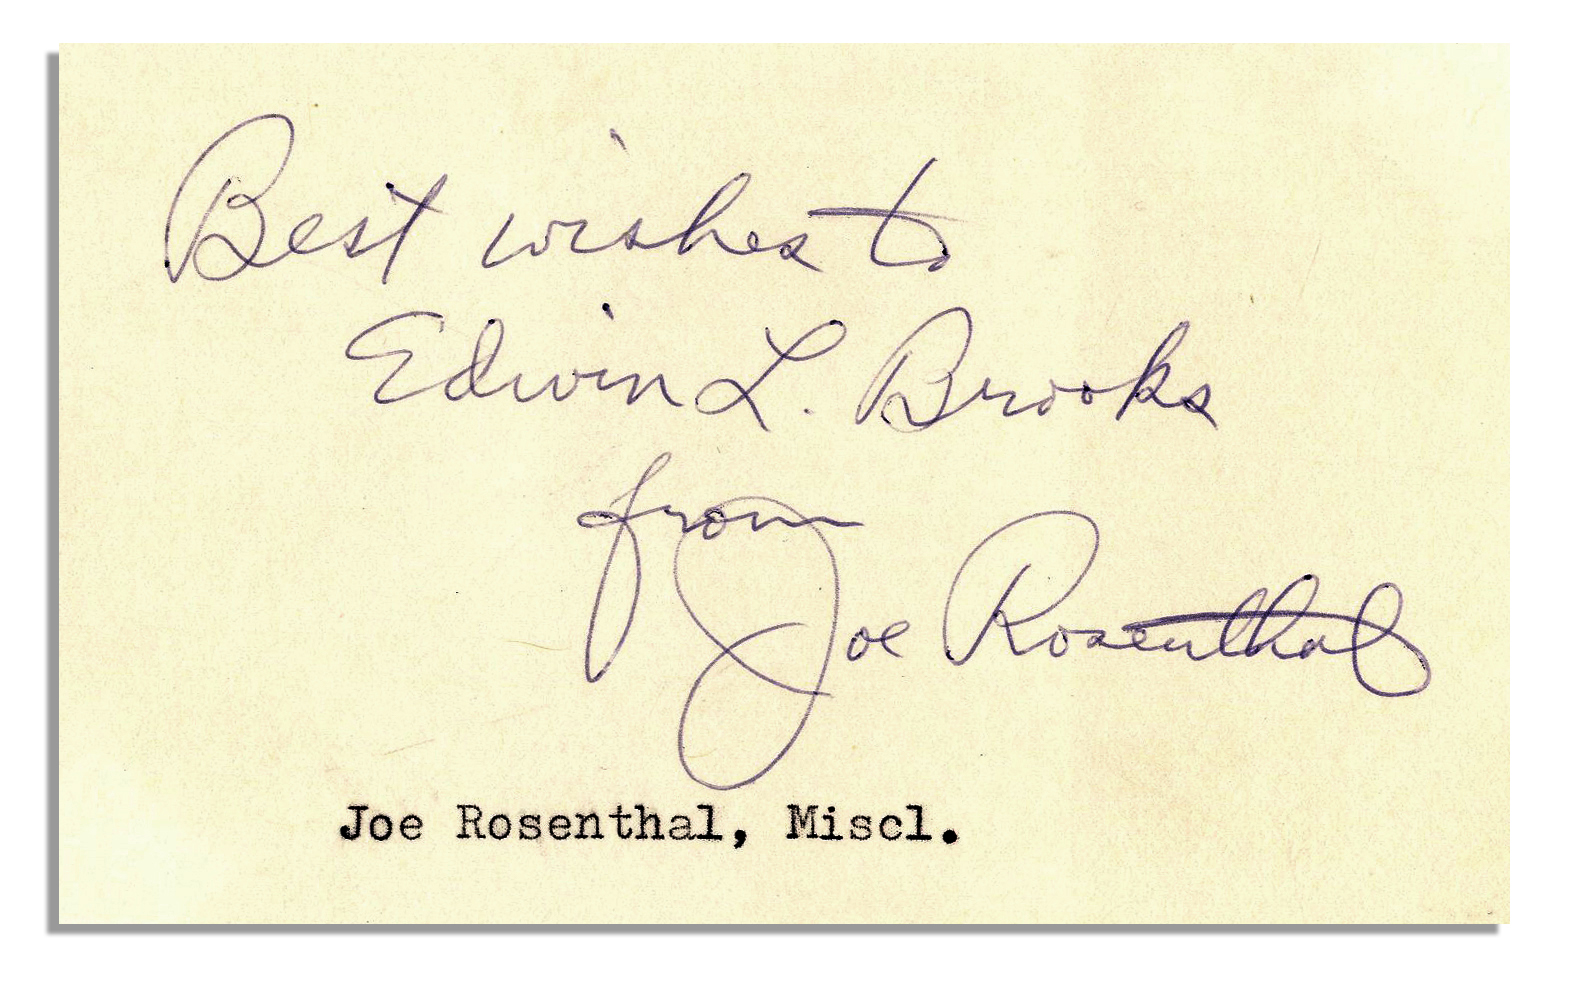 Best wishes to
Edwin L. Brooks
from
Joe Rosenthal
Joe Rosenthal, Miscl.